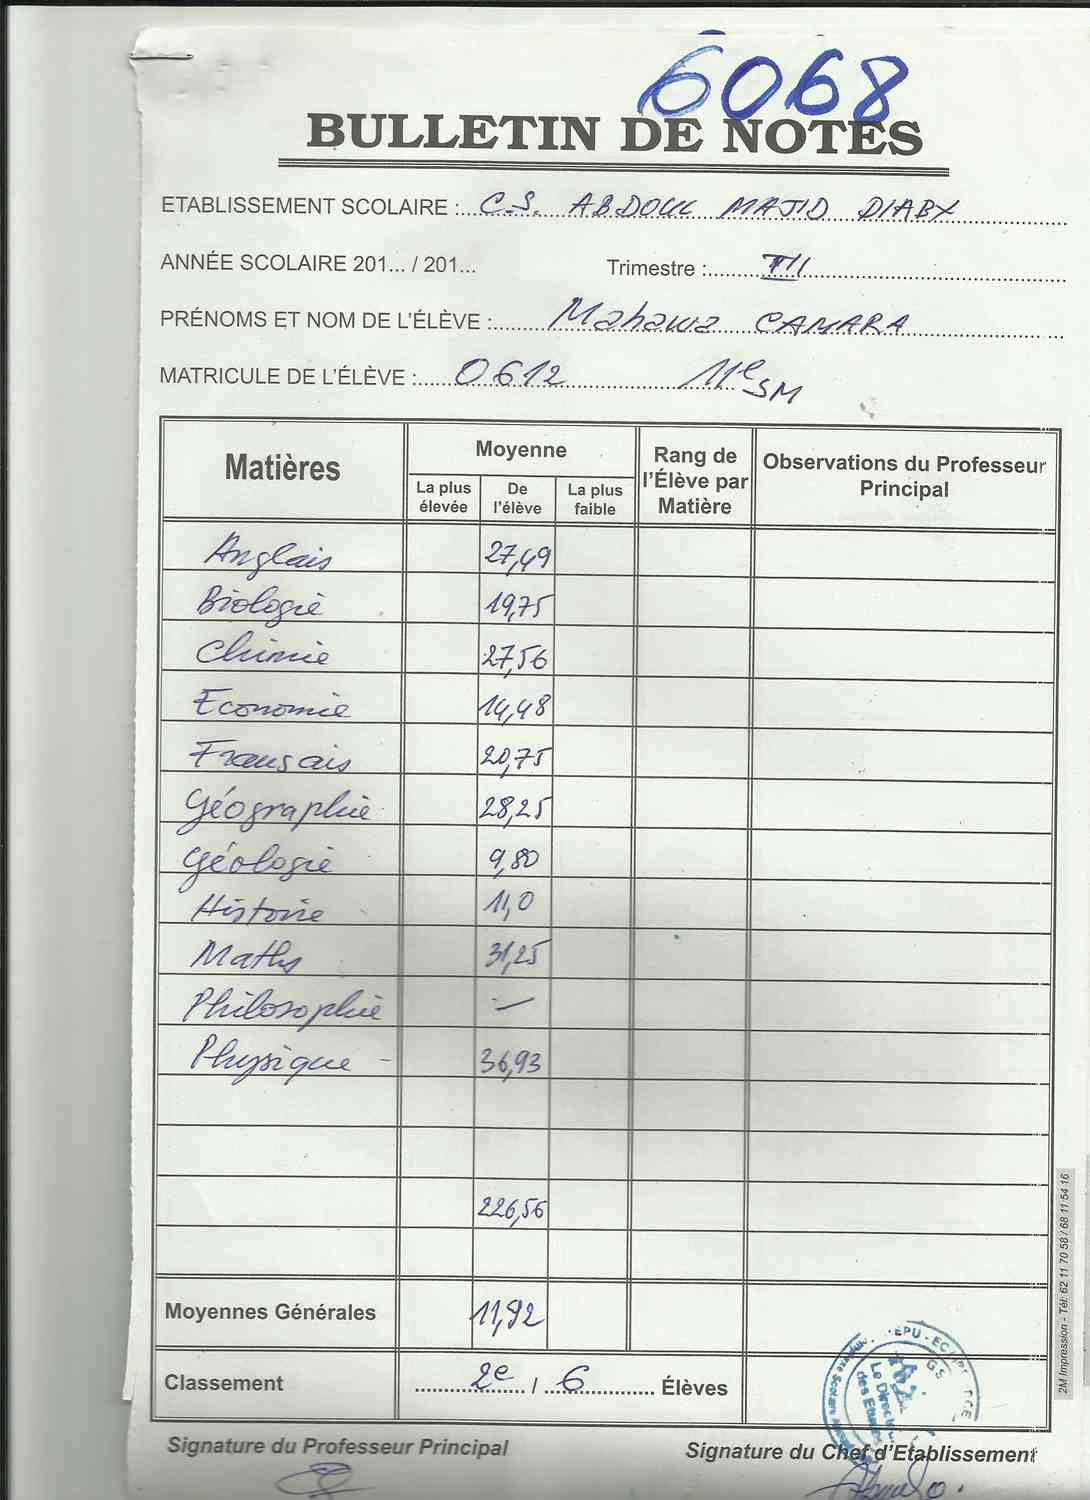 6068
BULLETIN DE NOTES
ETABLISSEMENT SCOLAIRE : C.S. ABDOUL MAJID DIABY
ANNÉE SCOLAIRE 201... / 201... Trimestre : III
PRÉNOMS ET NOM DE L'ÉLÈVE : Mahawa CAMARA
MATRICULE DE L'ÉLÈVE : 0612 11e SM
Matières Moyenne Rang de l'Élève par Matière Observations du Professeur Principal
La plus élevée De l'élève La plus faible
Anglais 27,49
Biologie 19,75
Chimie 27,56
Economie 14,48
Français 20,75
Géographie 28,25
Géologie 9,80
Histoire 11,0
Maths 31,25
Philosophie —
Physique - 36,93
226,56
Moyennes Générales 11,92
Classement 2e / 6 Élèves
Le Directeur
des Etudes
Signature du Professeur Principal Signature du Chef d'Etablissement
2M Impression - Tél: 62 11 70 58 / 68 11 54 16